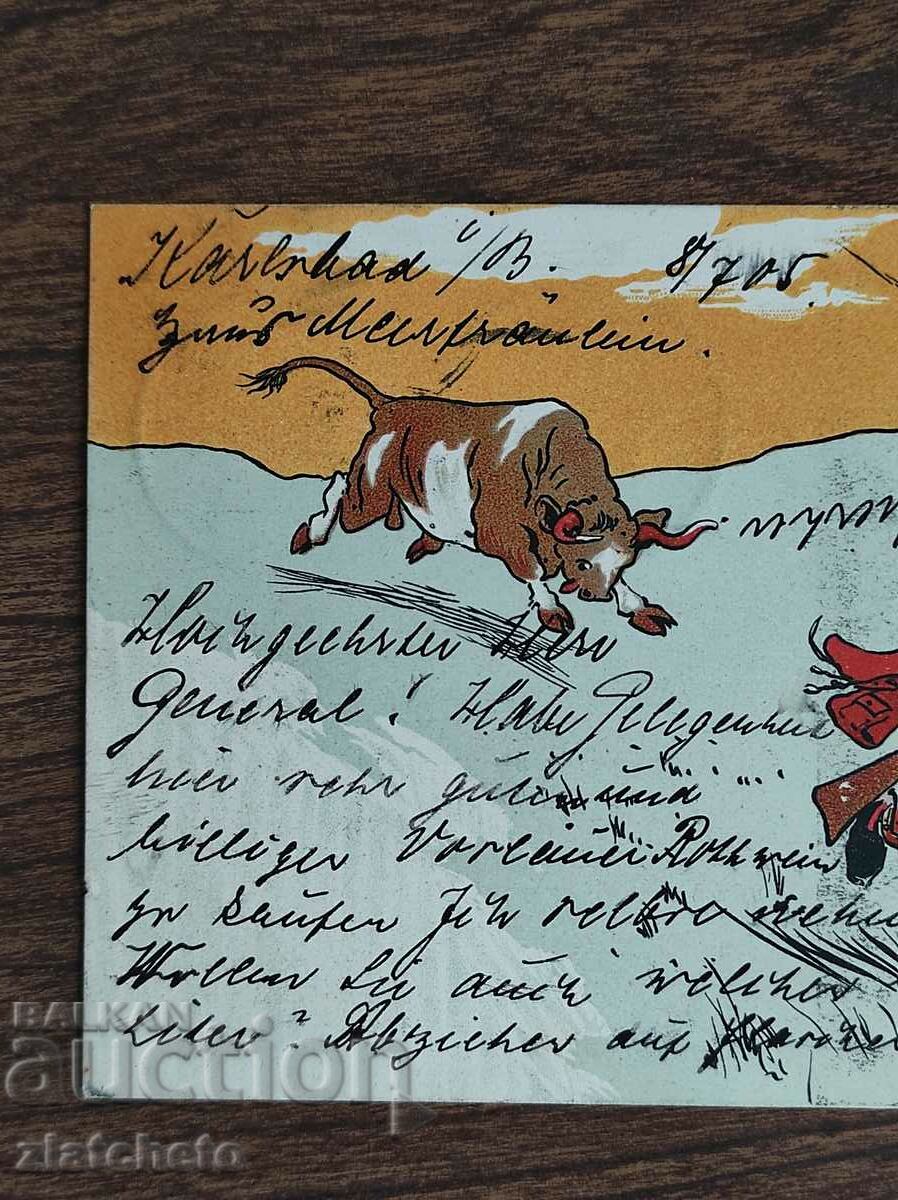 Karlsbad i/B. 8/7 05.
Haus Meerfräulein.
Hochgeehrter Herr
General! Habe Gelegenheit
hier sehr guten und
billigen Rothwein
zu kaufen Ich selber nehme
Wollen Sie auch welchen
Liter? Abziehen auf
BALKAN
auction
zlatcheto